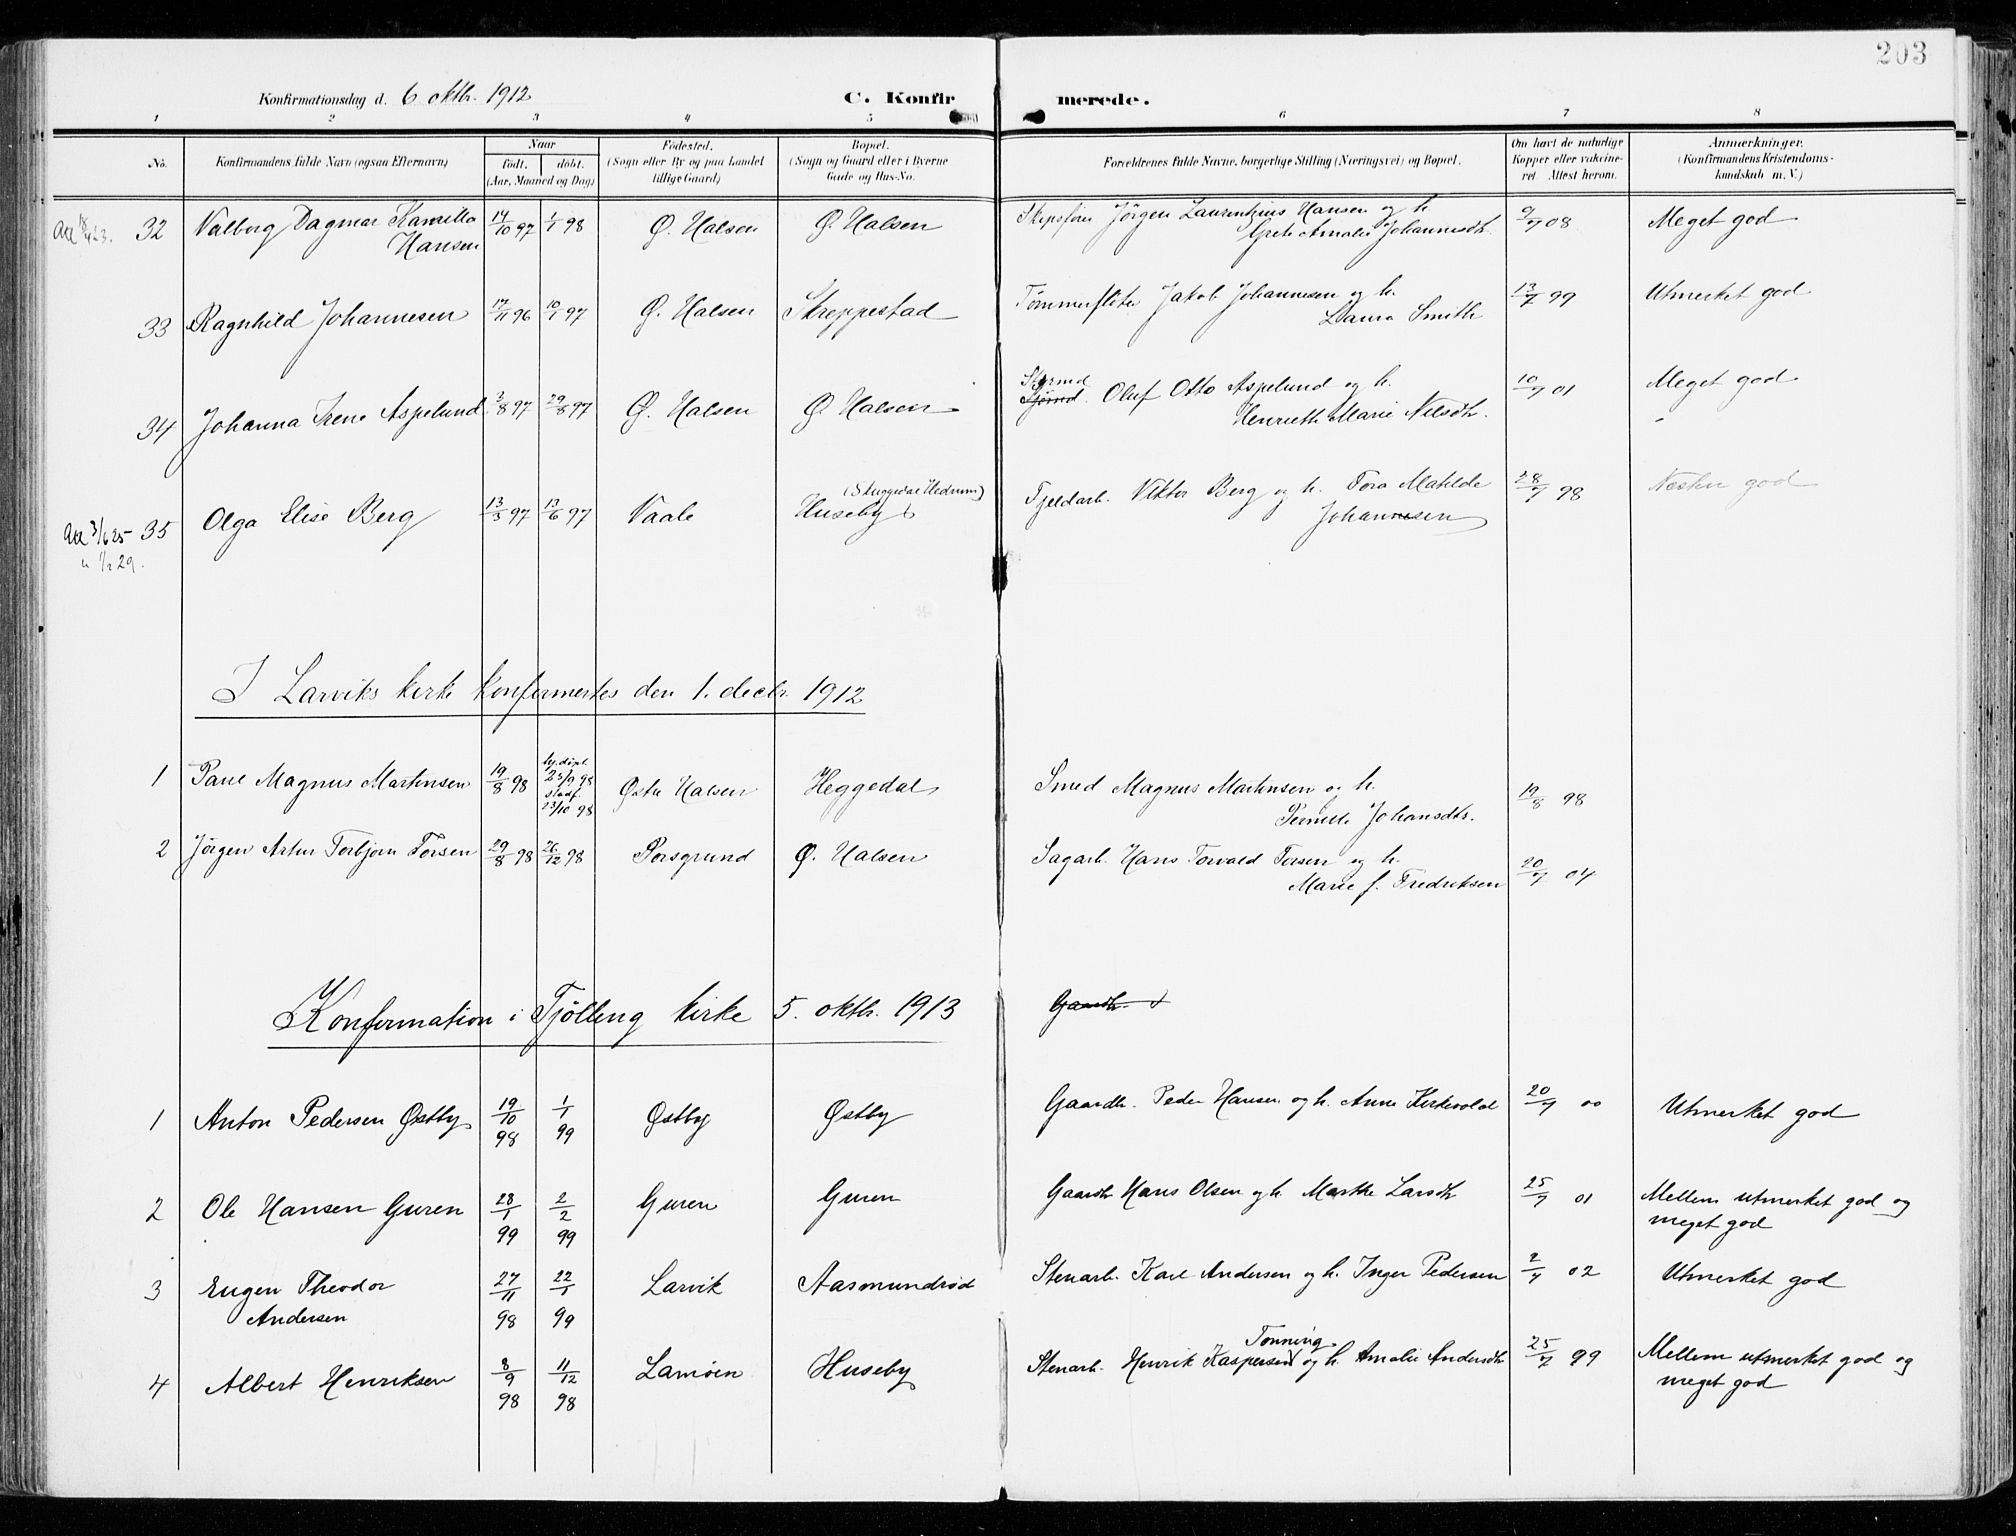 203
Konfirmationsdag d. 6 oktbr. 1912 C. Konfir merede.
1 2 3 4 5 6 7 8
No. Konfirmandens fulde Navn (ogsaa Efternavn) Naar født. døbt. (Aar, Maaned og Dag) Fødested. (Sogn eller By og paa Landet tillige Gaard) Bopæl. (Sogn og Gaard eller i Byerne Gade og Hus-No. Forældrenes fulde Navne, borgerlige Stilling (Næringsvei) og Bopæl. Om havt de naturlige Kopper eller vakcineret. Attest herom. Anmærkninger. (Konfirmandens Kristendomskundskab m. V.)
32 Valborg Dagmar Kamilla 14/10 97 1/1 98 Ø. Halsen Ø. Halsen Skipsfører Jörgen Laurentzius Hansen og h. 9/7 08 Meget god
Hansen Grete Amalie Johannesdtr.
33 Ragnhild Johannesen 17/11 96 10/1 97 Ø. Halsen Skreppestad Tømmerfløter Jakob Johannesen og h. 13/7 99 Utmerket god
Laura Smith
34 Johanna Irene Aspelund 2/8 97 29/8 97 Ø. Halsen Ø. Halsen Styrmd Oluf Otto Aspelund og h. 10/7 01 Meget god
Sjømd. Henriette Marie Nilsdtr.
Att 3/6 25 35 Olga Elise Berg 13/5 97 13/6 97 Vaale Huseby (Skuggedal Hedrum) Fjeldarb. Viktor Berg og h. Tora Matilde 28/7 98 Næsten god
" 1/2 29. Johannesen
I Larviks kirke konfirmertes den 1. decbr. 1912
1 Paul Magnus Martinsen 19/8 98 hj.døpt 25/9 98 stadf. 23/10 98 Østre Halsen Heggedal Smed Magnus Martinsen og h. 19/8 98
Pernille Johansdtr.
2 Jörgen Artur Torbjørn Torsen 29/8 98 26/12 98 Porsgrund Ø. Halsen Sagarb. Hans Torvald Torsen og h. 20/7 04
Marie f. Fredriksen
Konfirmation i Tjølling kirke 5. oktbr. 1913 Gaardbr.
1 Anton Pedersen Østby 19/10 98 1/1 99 Østby Østby Gaardbr. Peder Hansen og h. Anne Kirkevold 20/7 00 Utmerket god
2 Ole Hansen Guren 28/1 99 2/2 99 Guren Guren Gaardbr Hans Olsen og h. Marthe Larsdtr 25/7 01 Mellem utmerket god og
meget god
3 Eugen Theodor 27/11 98 22/1 99 Larvik Aasmundrød Stenarb. Karl Andersen og h. Inger Pedersen 2/7 02 Utmerket god
Andersen
4 Albert Henriksen 8/9 98 11/12 98 Lamøen Huseby Stenarb. Henrik Kaspersen Tonning og h. Amalie Andersdtr 25/7 99 Mellem utmerket god og
meget god